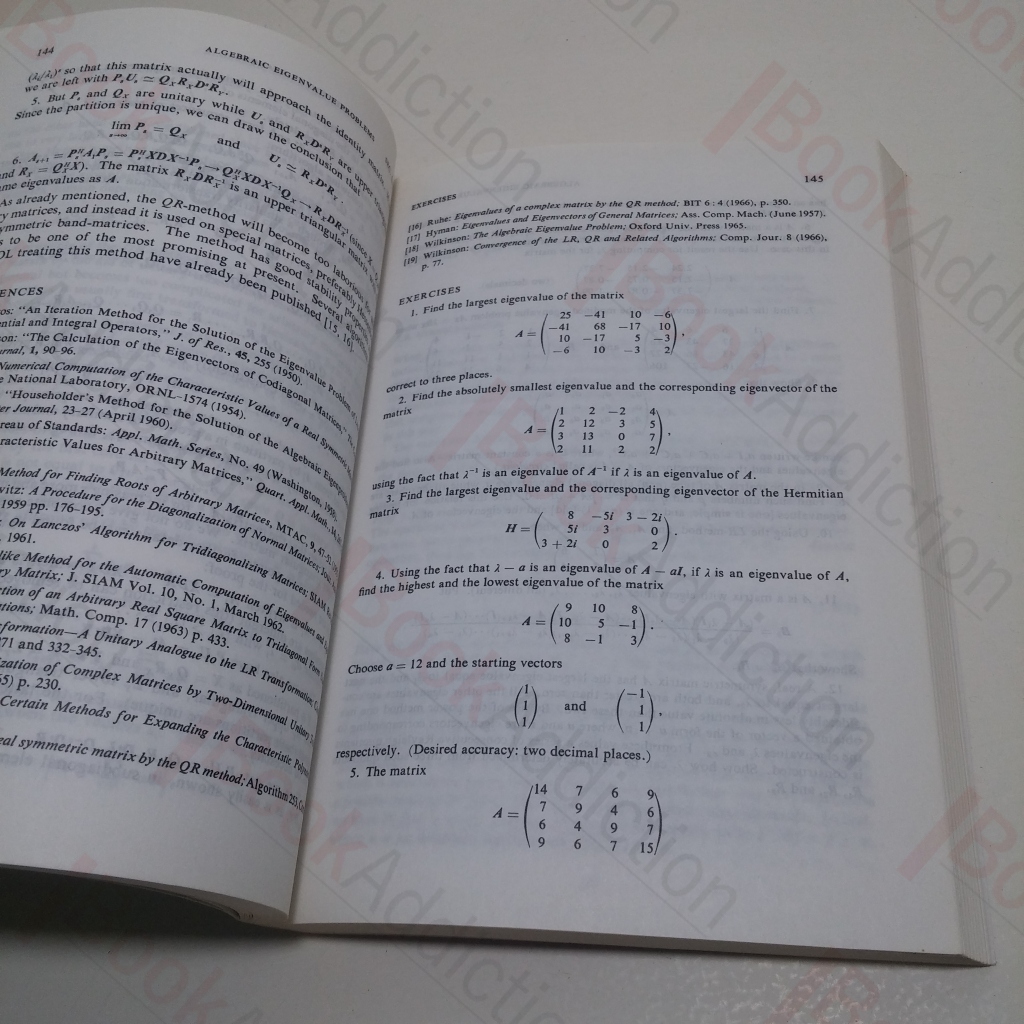 144
ALGEBRAIC EIGENVALUE PROBLEMS
so that this matrix actually will approach the identity matrix
we are left with PₛUₛ ≃ QₓRₓDˢRᵧ.
5. But Pₛ and Qₓ are unitary while Uₛ and RₓDˢRᵧ are upper
Since the partition is unique, we can draw the conclusion that
lim Pₛ = Qₓ and Uₛ ≃ RₓDˢRᵧ.
s→∞
6. Aₛ₊₁ = PₛᴴA₁Pₛ = PₛᴴXDX⁻¹Pₛ → QₓᴴXDX⁻¹Qₓ → RₓDRₓ⁻¹ (since
Rₓ = QₓᴴX). The matrix RₓDRₓ⁻¹ is an upper triangular matrix
eigenvalues as A.
As already mentioned, the QR-method will become too laborious
matrices, and instead it is used on special matrices, preferably
symmetric band-matrices. The method has good stability
to be one of the most promising at present. Several
treating this method have already been published [15, 16].
"An Iteration Method for the Solution of the Eigenvalue Problem
and Integral Operators," J. of Res., 45, 255 (1950).
"The Calculation of the Eigenvectors of Codiagonal Matrices,"
1, 90-96.
Numerical Computation of the Characteristic Values of a Real Symmetric
National Laboratory, ORNL-1574 (1954).
"Householder's Method for the Solution of the Algebraic
Journal, 23-27 (April 1960).
of Standards: Appl. Math. Series, No. 49 (Washington,
Values for Arbitrary Matrices," Quart. Appl. Math.,
Method for Finding Roots of Arbitrary Matrices, MTAC, 9,
A Procedure for the Diagonalization of Normal Matrices;
1959 pp. 176-195.
On Lanczos' Algorithm for Tridiagonalizing Matrices; SIAM
1961.
Method for the Automatic Computation of Eigenvalues and
Matrix; J. SIAM Vol. 10, No. 1, March 1962.
of an Arbitrary Real Square Matrix to Tridiagonal Form
Math. Comp. 17 (1963) p. 433.
A Unitary Analogue to the LR Transformation;
and 332-345.
of Complex Matrices by Two-Dimensional Unitary
p. 230.
Certain Methods for Expanding the Characteristic
symmetric matrix by the QR method; Algorithm 253,
EXERCISES
145
[16] Ruhe: Eigenvalues of a complex matrix by the QR method; BIT 6 : 4 (1966), p. 350.
[17] Hyman: Eigenvalues and Eigenvectors of General Matrices; Ass. Comp. Mach. (June 1957).
[18] Wilkinson: The Algebraic Eigenvalue Problem; Oxford Univ. Press 1965.
[19] Wilkinson: Convergence of the LR, QR and Related Algorithms; Comp. Jour. 8 (1966),
p. 77.
EXERCISES
1. Find the largest eigenvalue of the matrix
25 −41 10 −6
A = −41 68 −17 10 ,
10 −17 5 −3
−6 10 −3 2
correct to three places.
2. Find the absolutely smallest eigenvalue and the corresponding eigenvector of the
matrix
1 2 −2 4
A = 2 12 3 5 ,
3 13 0 7
2 11 2 2
using the fact that λ⁻¹ is an eigenvalue of A⁻¹ if λ is an eigenvalue of A.
3. Find the largest eigenvalue and the corresponding eigenvector of the Hermitian
matrix
8 −5i 3 − 2i
H = 5i 3 0 .
3 + 2i 0 2
4. Using the fact that λ − a is an eigenvalue of A − aI, if λ is an eigenvalue of A,
find the highest and the lowest eigenvalue of the matrix
9 10 8
A = 10 5 −1 .
8 −1 3
Choose a = 12 and the starting vectors
1 −1
1 and 1 ,
1 1
respectively. (Desired accuracy: two decimal places.)
5. The matrix
14 7 6 9
A = 7 9 4 6
6 4 9 7
9 6 7 15